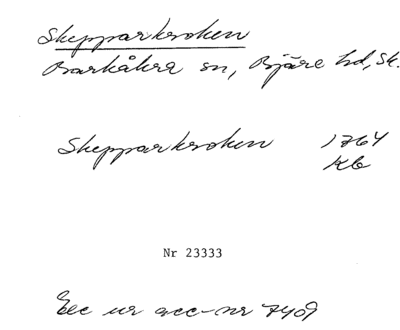 Skepparkroken
Barkåkra sn, Bjäre hd, Sk.
Skepparkroken 1764
Kb
Nr 23333
Exc ur acc-nr 7409